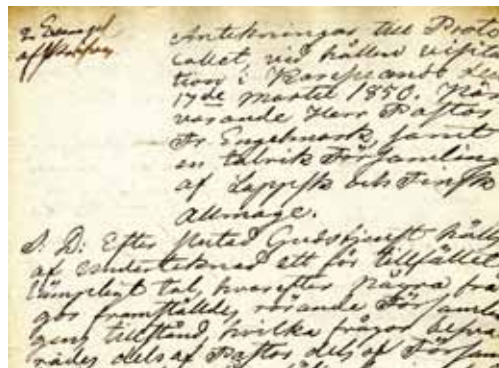 Antekningar till Proto
collet, vid hållen visita
tion i Karesuando den
17de Martii 1850. När
varande Herr Pastor
Fr. Engelmark, samt
en talrik Församling
af Lappsk och Finsk
allmoge.
S. D. Efter slutad Gudstjenst hölls
af undertecknad ett för tillfället
lämpligt tal, hvarefter några frå
gor framställdes, rörande Församlin
gens tillstånd, hvilka frågor besva
rades dels af Pastor dels af Försam